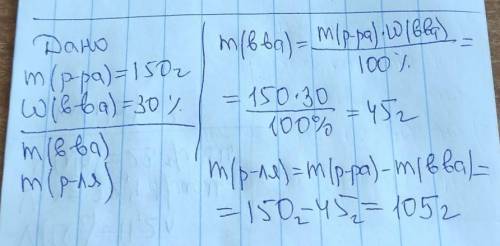 Дано
m(р-ра)=150г
W(в-ва)=30%
m(в-ва)
m(р-ля)
m(в-ва)=m(р-ра)·W(в-ва)/100%=
=150·30/100%=45г
m(р-ля)=m(р-ра)-m(в-ва)=
=150г-45г=105г